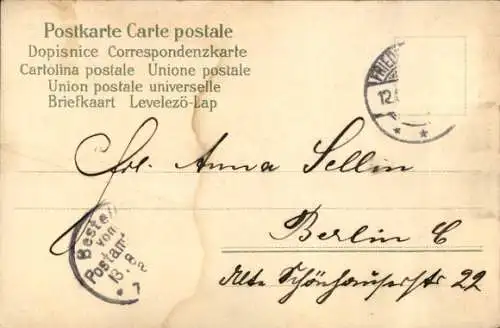 Postkarte Carte postale
Dopisnice Correspondenzkarte
Cartolina postale Unione postale
Union postale universelle
Briefkaart Levelező-Lap
FRIED
12.
Frl. Anna Sellin
Berlin C
Alte Schönhauserstr 22
Bestellt
vom
Postamt
13. 8
7